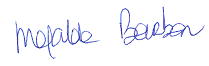 Mafalda Bourbon